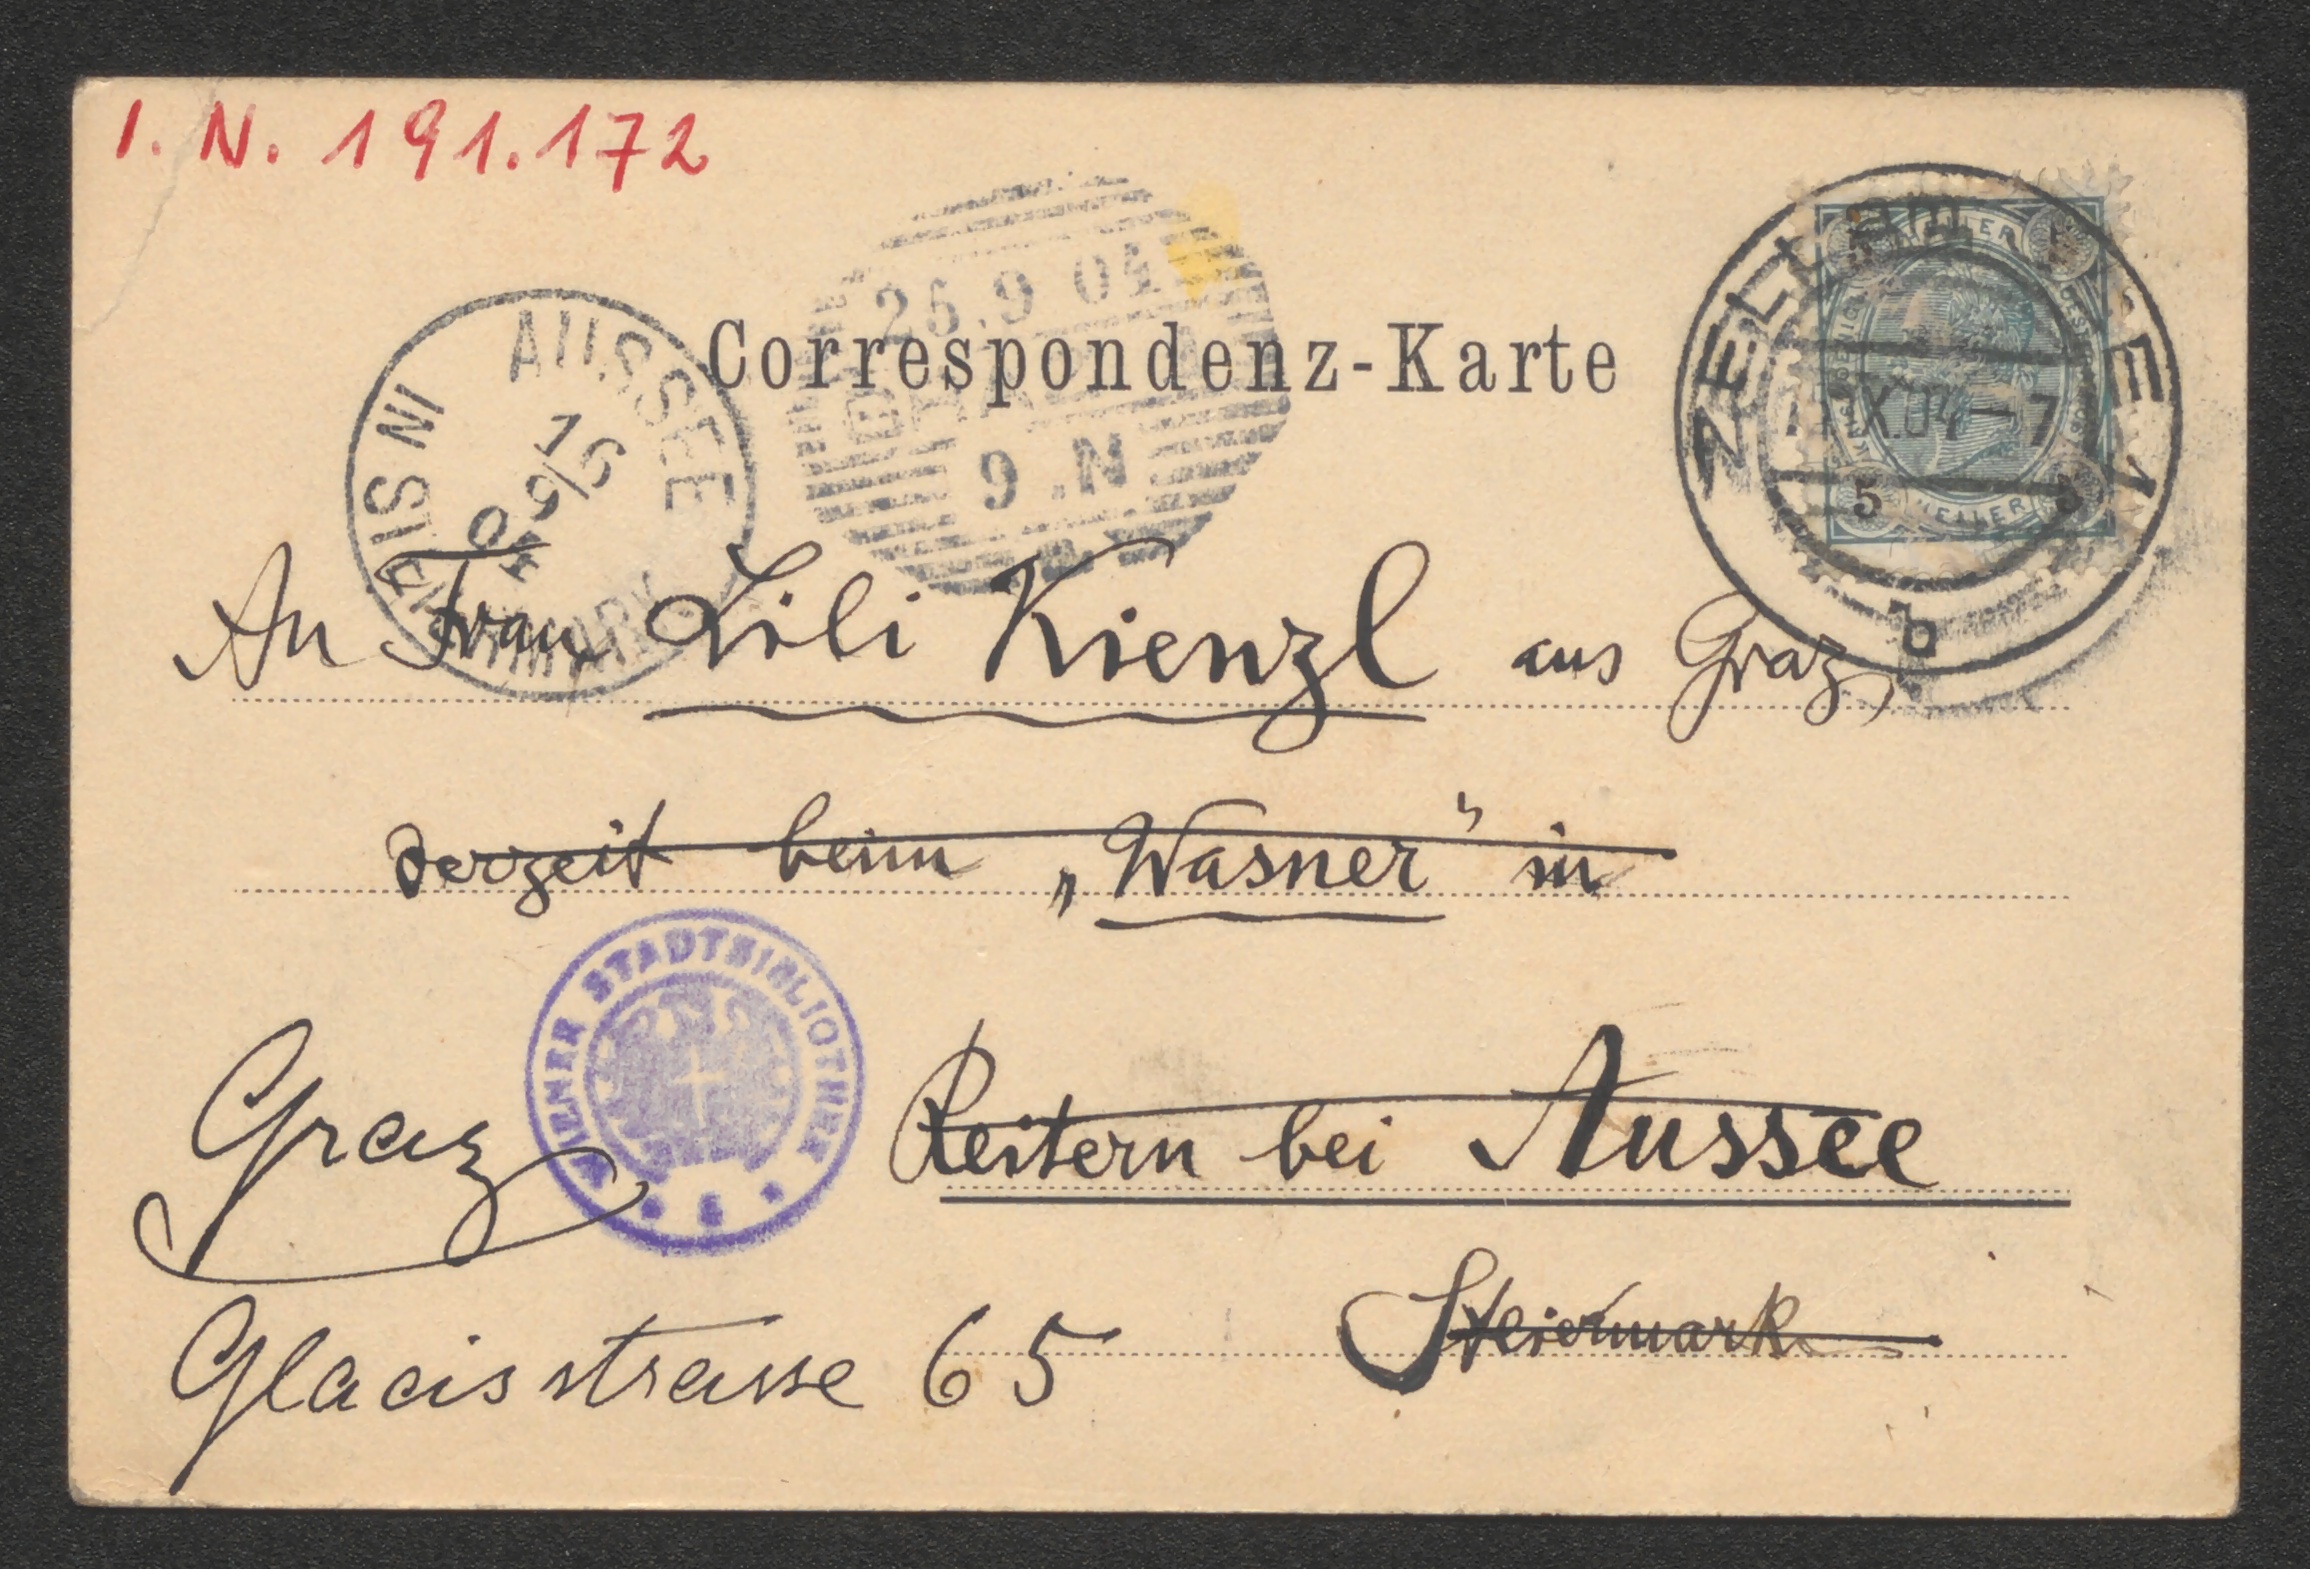 I. N. 191.172
AUSSEE
IN STEIERMARK
16
9/
04
26.9 04
GRAZ
9.N
Correspondenz-Karte
ZELL am SEE 1
IX.04-7
b
HELLER
5
HELLER
An Frau Lili Kienzl aus Graz,
derzeit beim „Wasner“ in
WIENER STADTBIBLIOTHEK
Graz
Reitern bei Aussee
Steiermark
Glacisstrasse 65